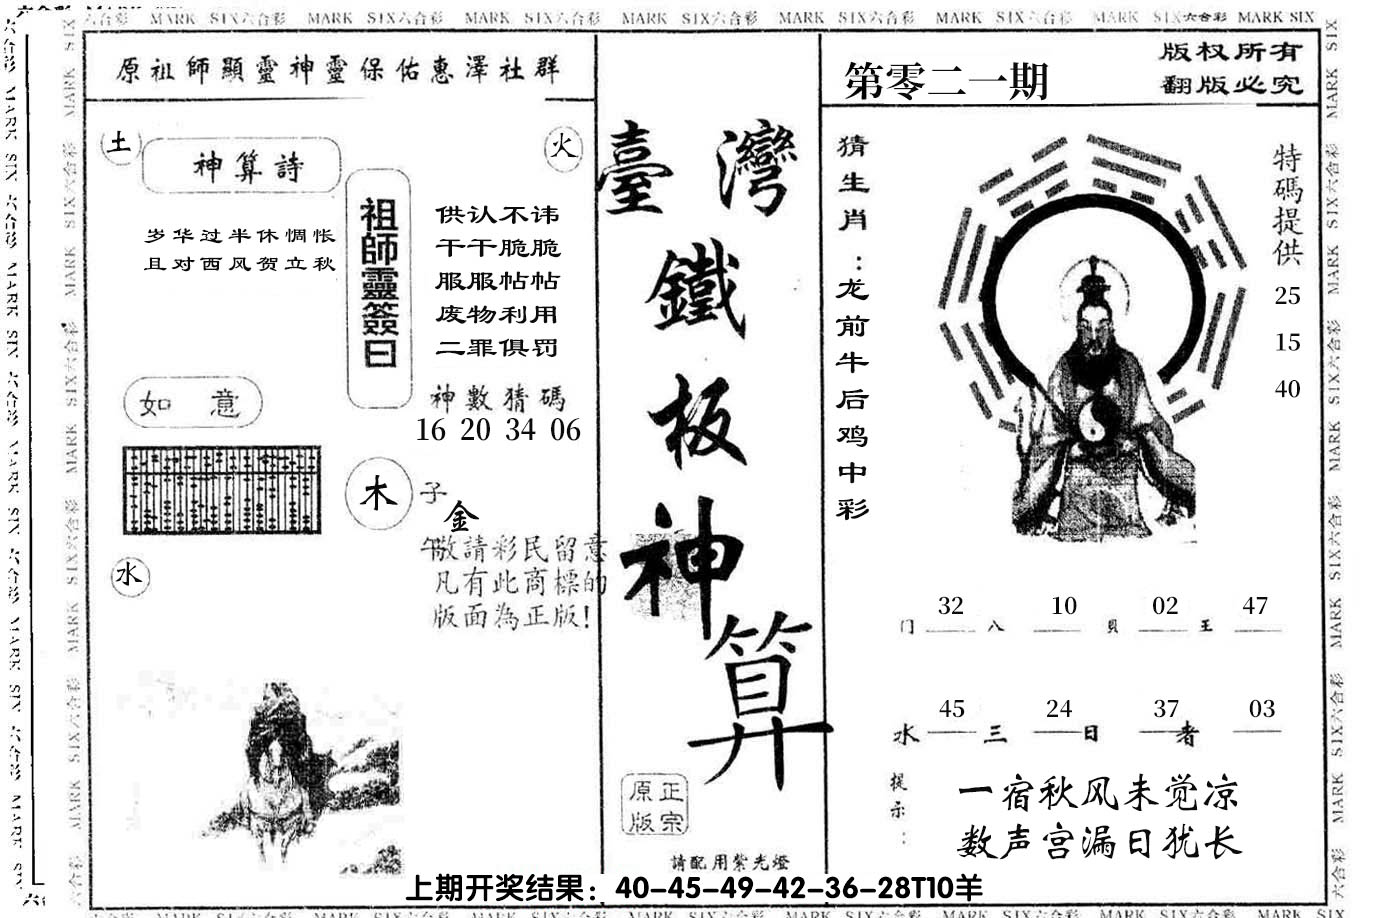 MARK SIX六合彩 MARK SIX六合彩 MARK SIX六合彩 MARK SIX六合彩 MARK SIX六合彩 MARK SIX六合彩 MARK SIX六合彩 MARK SIX
原祖師顯靈神靈保佑惠澤社群
土
神算詩
火
岁华过半休惆怅
且对西风贺立秋
祖師靈簽曰
供认不讳
干干脆脆
服服帖帖
废物利用
二罪俱罚
神數猜碼
16 20 34 06
如意
木
子
金
午
敬請彩民留意
凡有此商標的
版面為正版!
水
臺灣
鐵
板
神
算
正宗
原版
請配用紫光燈
第零二一期
版权所有
翻版必究
猜生肖:龙前牛后鸡中彩
特碼提供
25
15
40
32 10 02 47
门 八 贝 王
45 24 37 03
水 三 日 者
提示:
一宿秋风未觉凉
数声宫漏日犹长
上期开奖结果：40-45-49-42-36-28T10羊